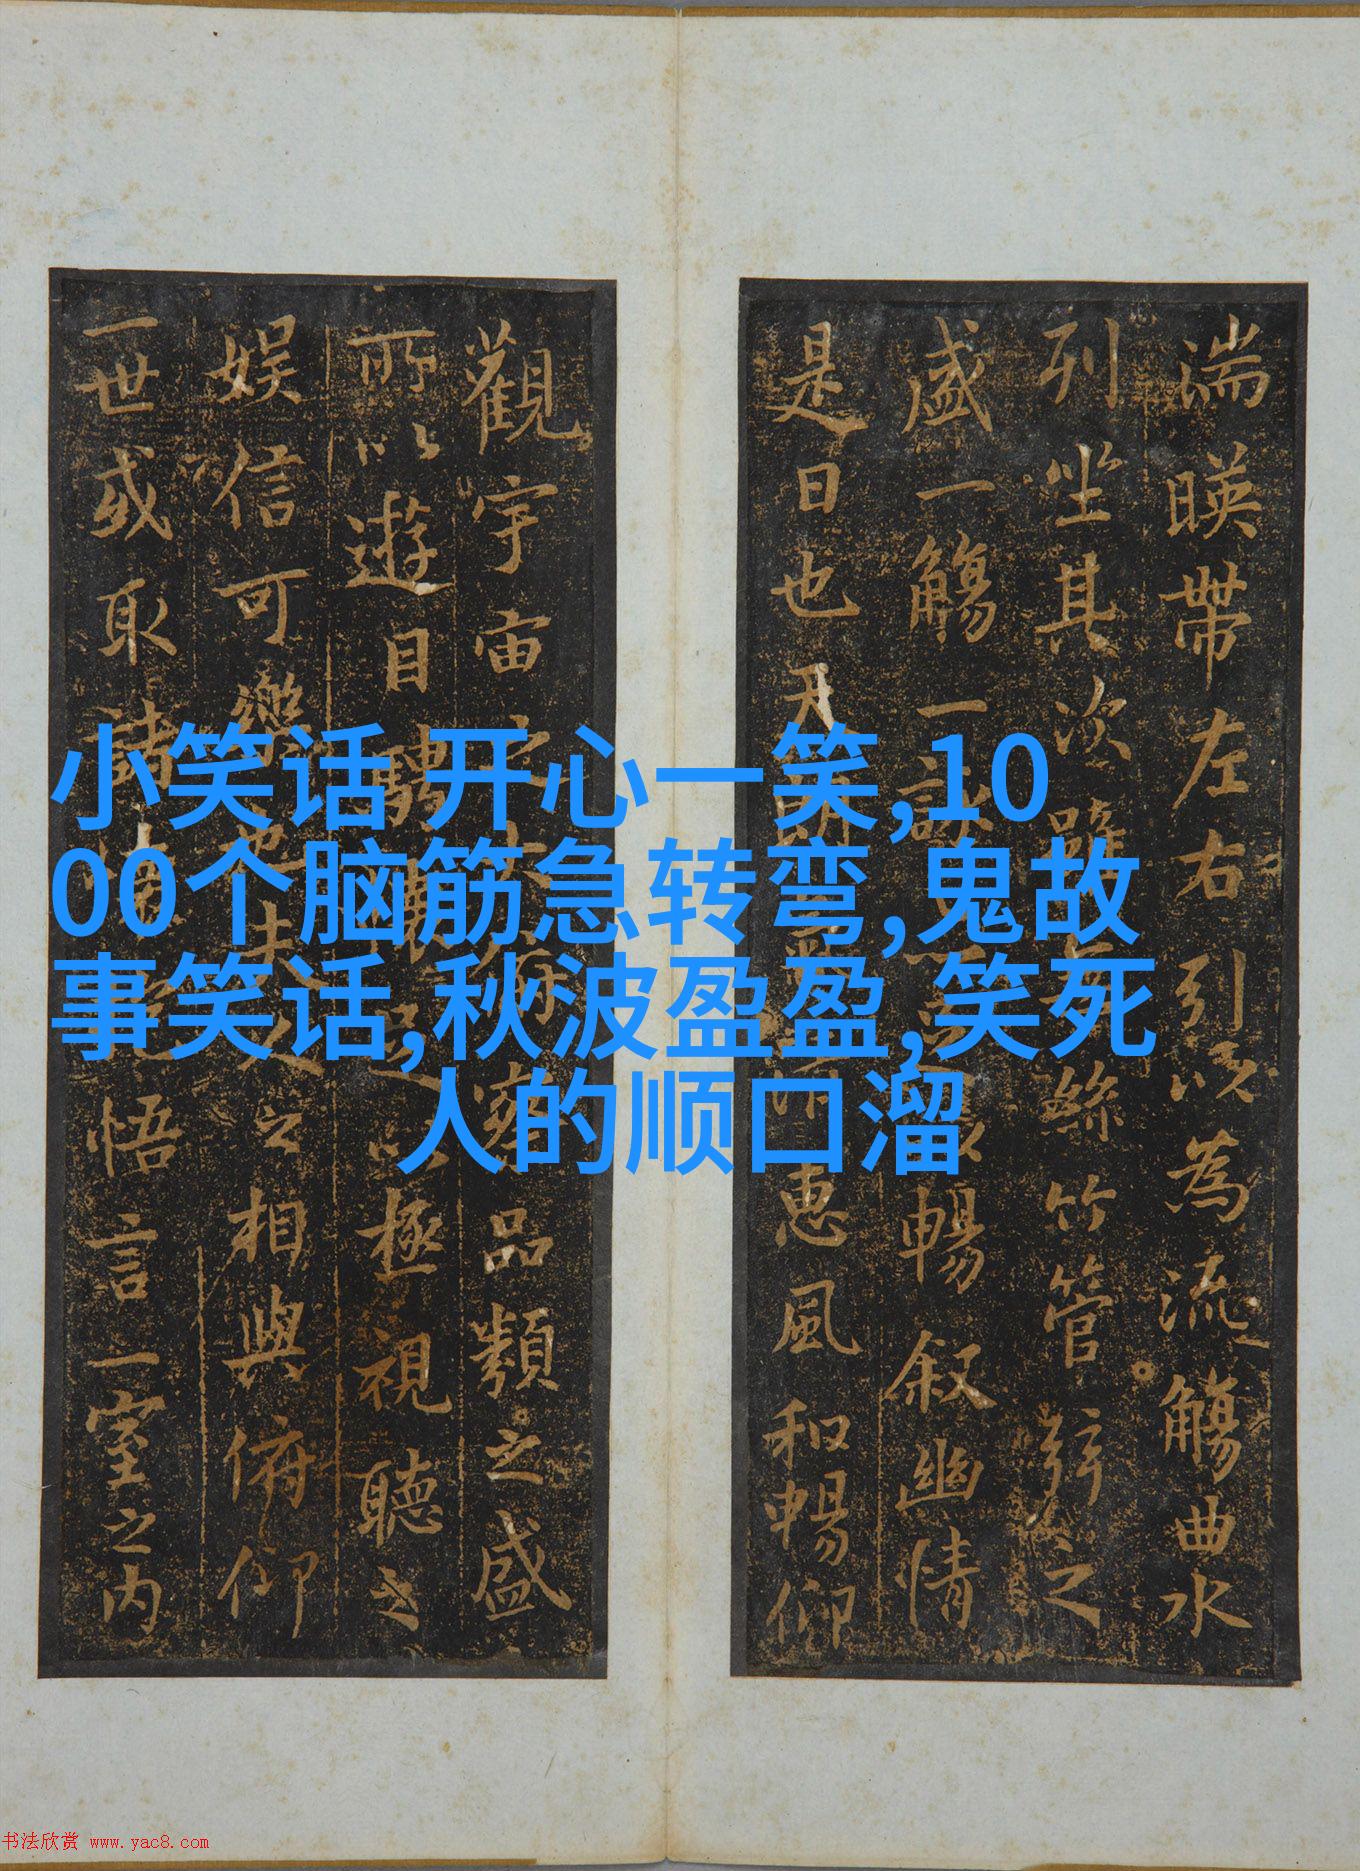 湍暎帶左右引以為流觴曲水
列坐其次雖絲竹管弦之
盛一觴一詠暢叙幽情
是日也天惠風和暢仰
觀宇宙之俯察品類之盛
所以遊目騁足以極視聽之
娛信可樂也夫人之相與俯仰
一世或取諸悟言一室之內
小笑话 开心一笑,10
00个脑筋急转弯,鬼故
事笑话,秋波盈盈,笑死
人的顺口溜
书法欣赏 www.yac8.com